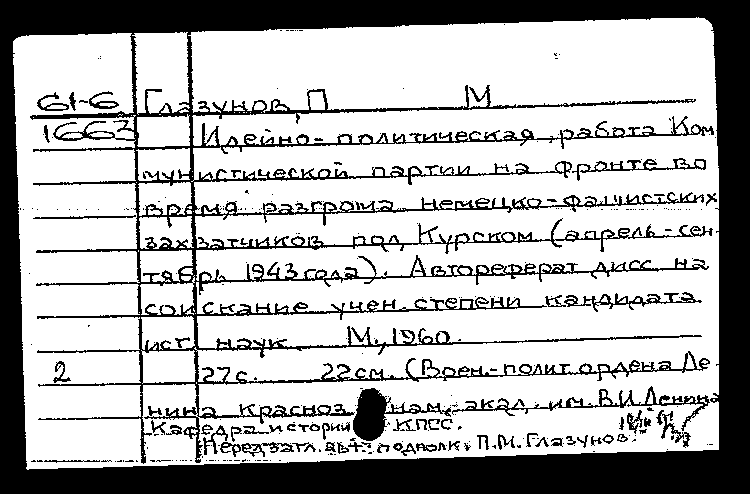 61-6 Глазунов, П М
1663 Идейно-политическая работа Ком
мунистической партии на фронте во
время разгрома немецко-фашистских
захватчиков под Курском (апрель-сен-
тябрь 1943 года). Автореферат дисс. на
соискание учен. степени кандидата
ист. наук. М., 1960.
2 27 с. 22 см. (Воен.-полит. ордена Ле-
нина Краснознам. акад. им. В.И. Ленина
Кафедра истории КПСС.
Перед загл. авт.: подполк. П.М. Глазунов.